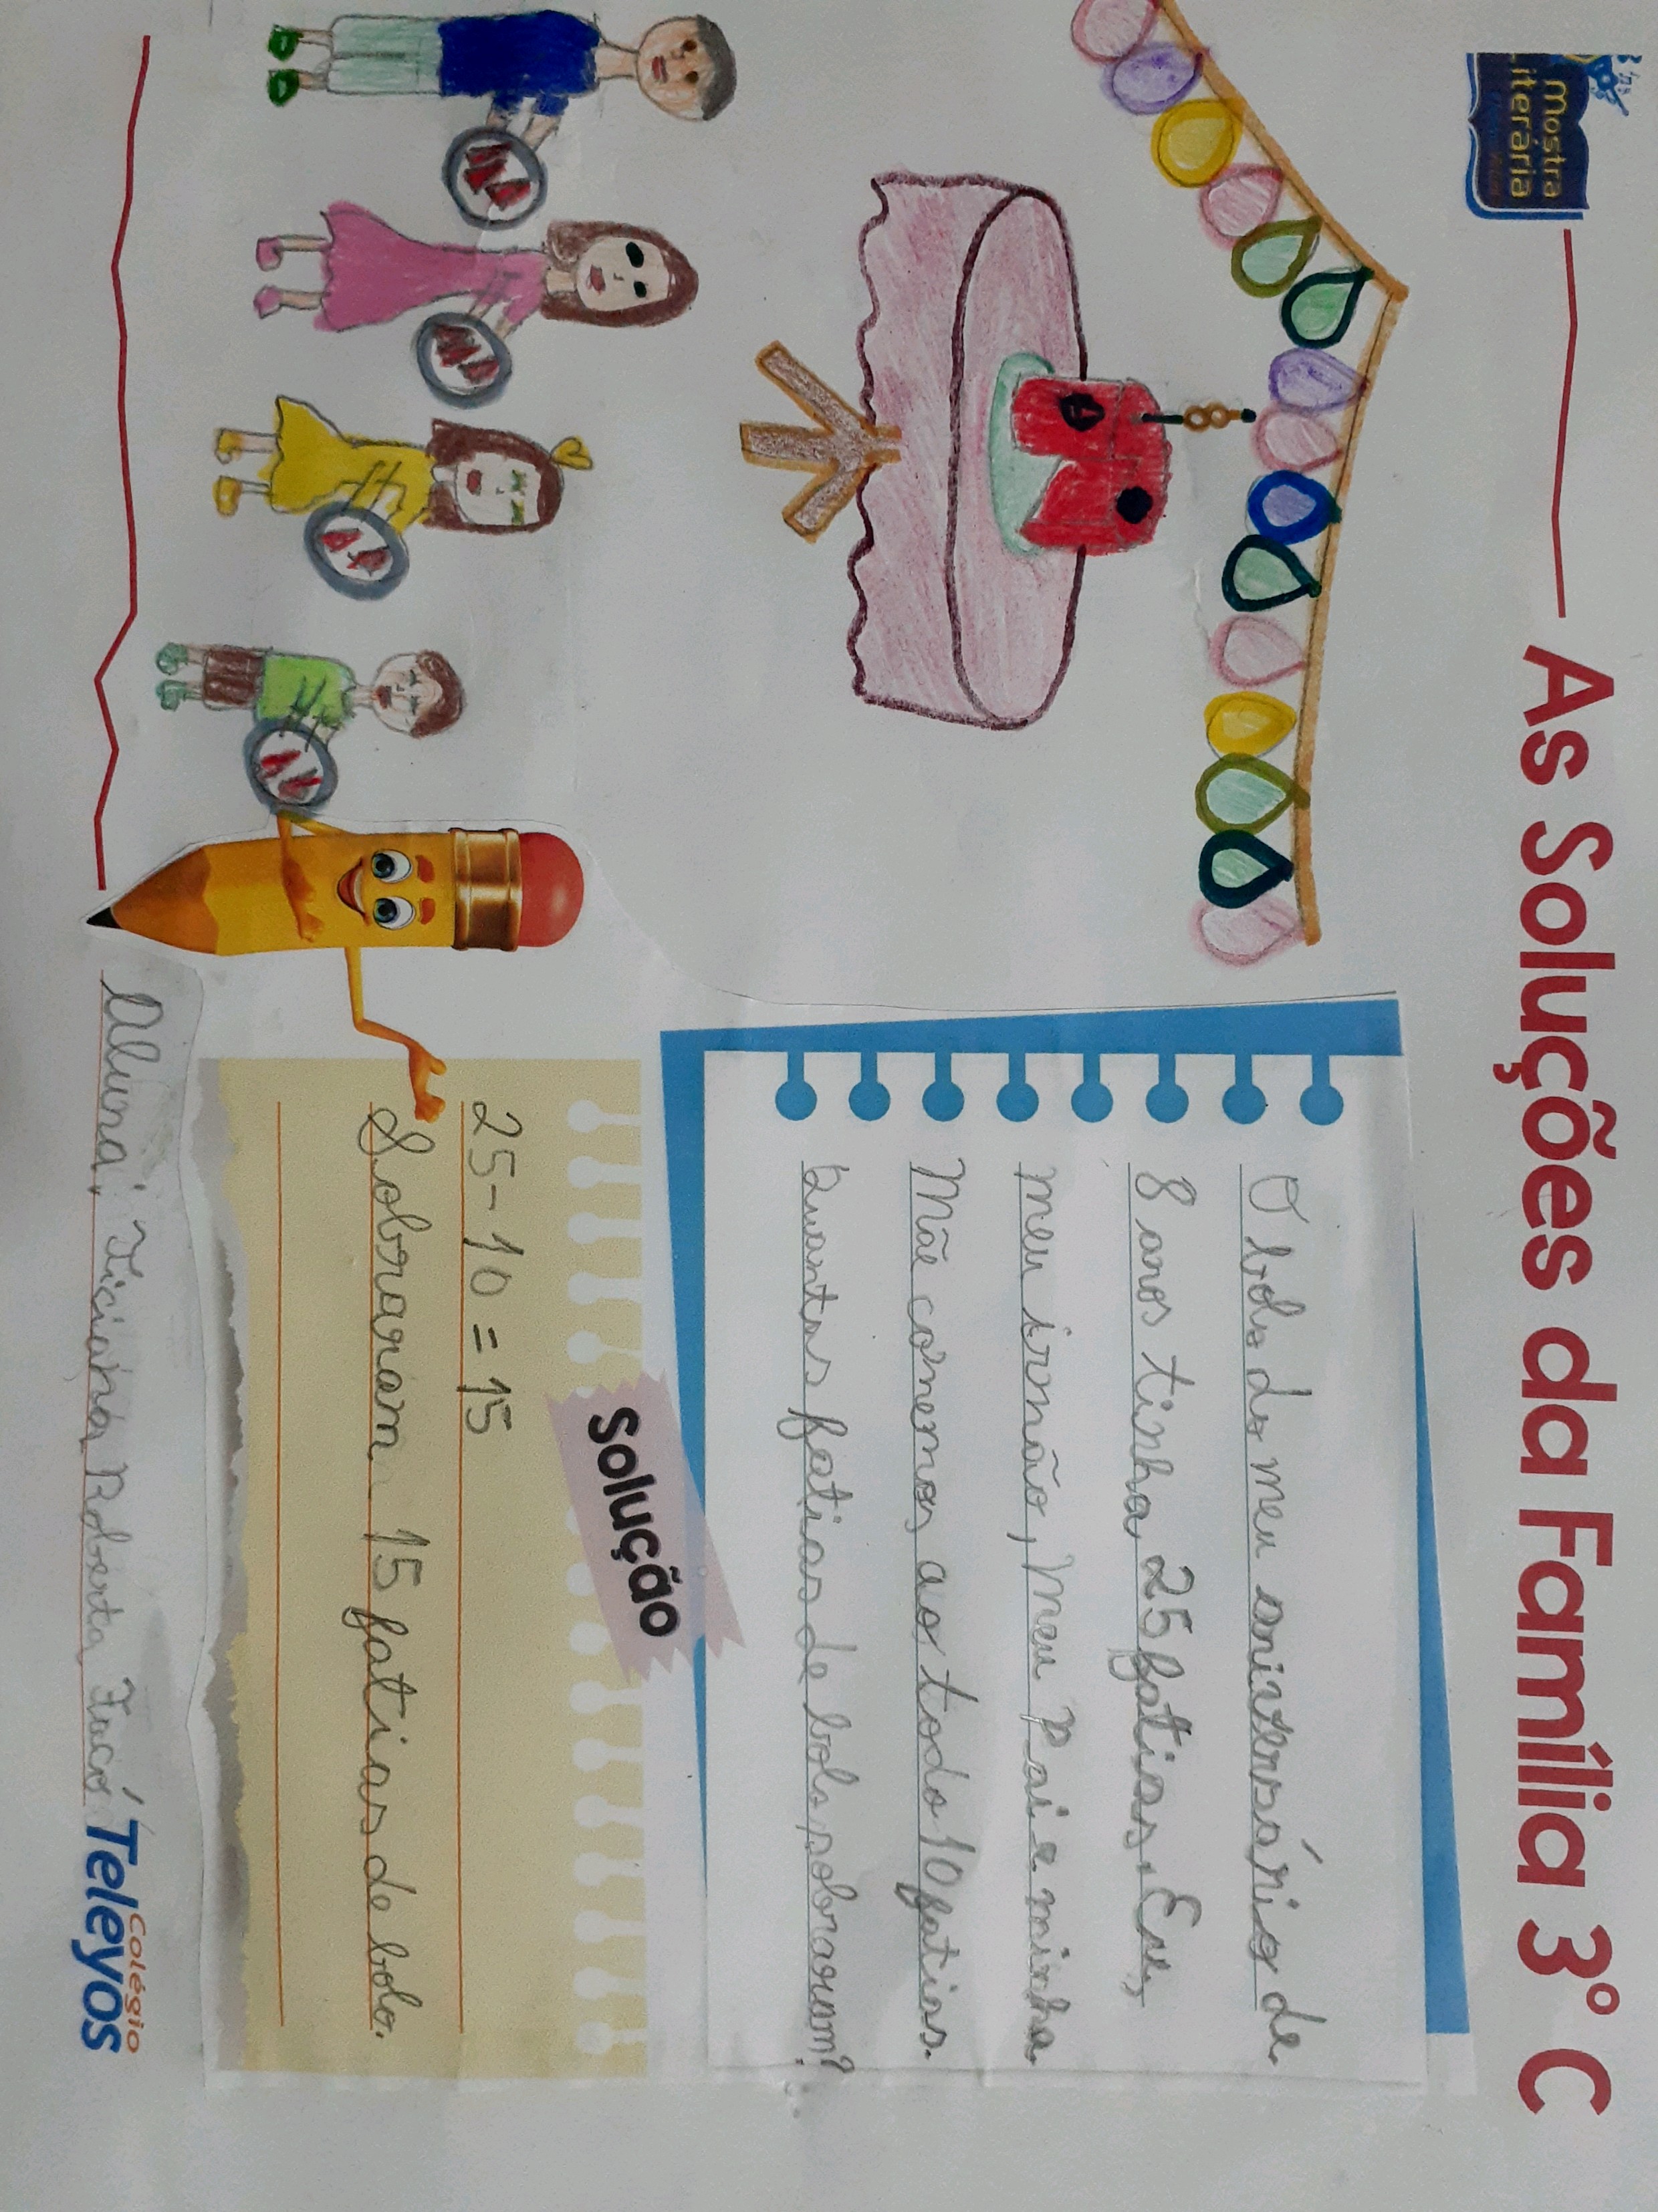 mostra
literária
As Soluções da Família 3º C
O bolo do meu aniversário de
8 anos tinha 25 fatias. Eu,
meu irmão, meu Pai e minha
Mãe comemos ao todo 10 fatias.
Quantas fatias de bolo sobraram?
Solução
25-10=15
Sobraram 15 fatias de bolo.
Aluna: Ticiana Roberta Facó
Colégio
Teleyos